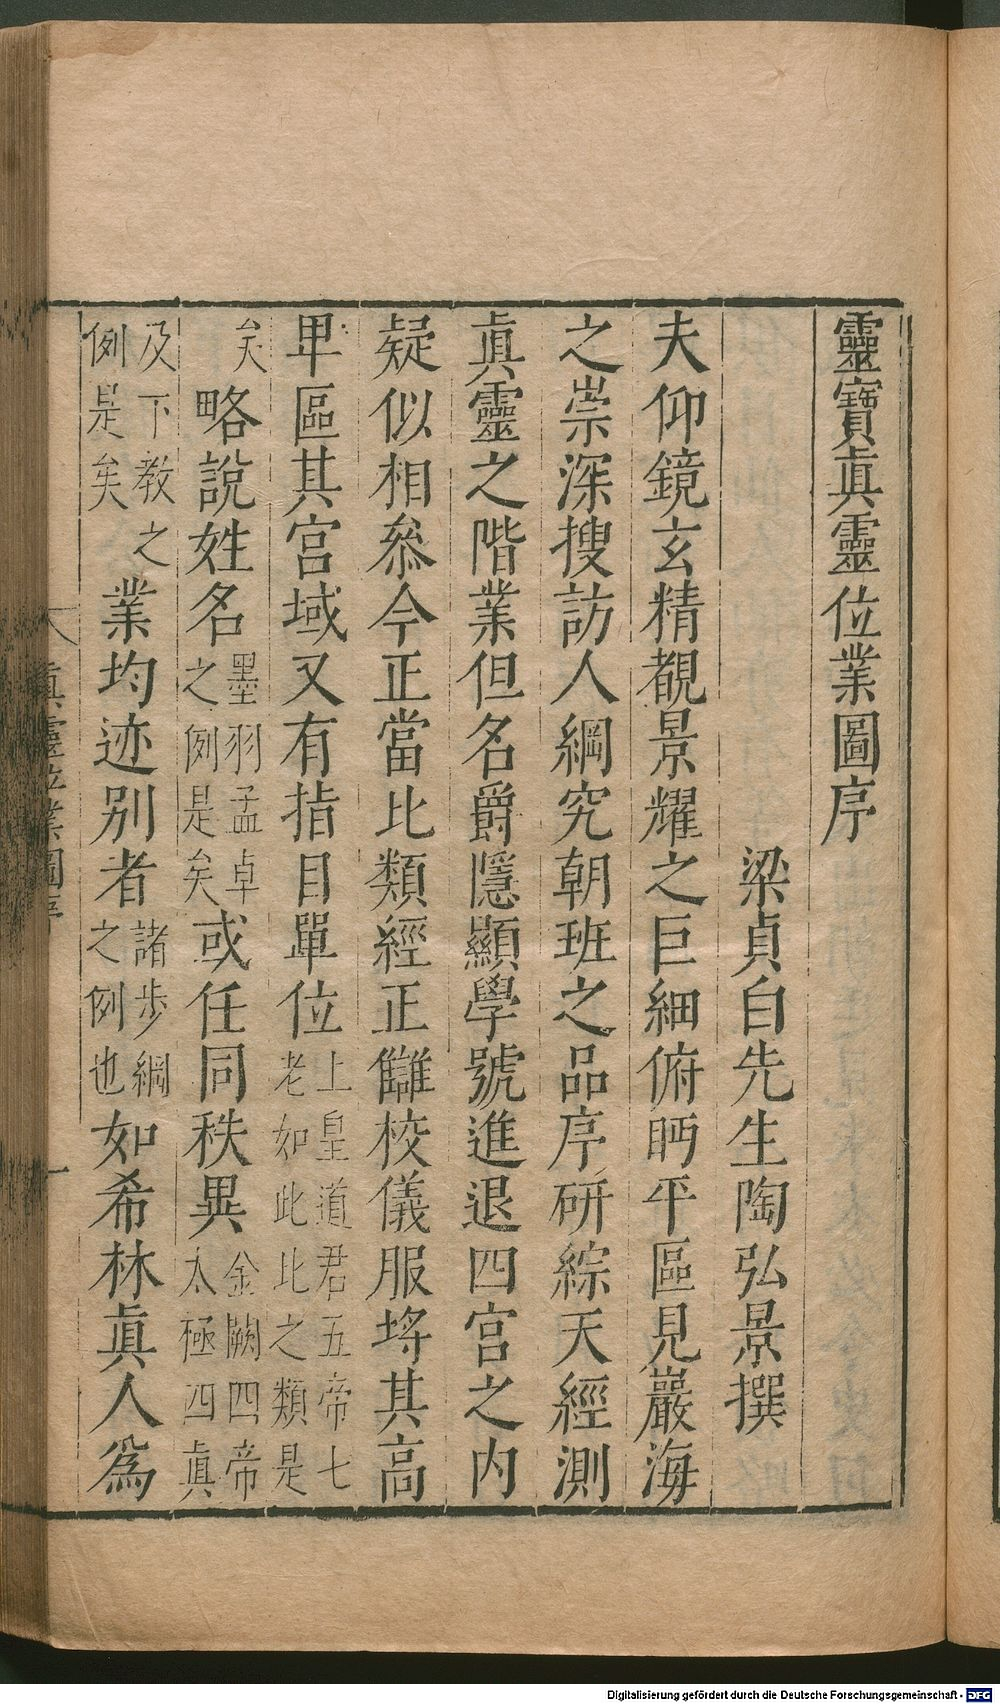 靈寶眞靈位業圖序
梁貞白先生陶弘景撰
夫仰鏡玄精覩景耀之巨細俯眄平區見巖海
之崇深搜訪人綱究朝班之品序研綜天經測
眞靈之階業但名爵隱顯學號進退四宮之内
疑似相叅今正當比類經正讎校儀服埒其高
卑區其宮域又有指目單位上皇道君五帝七老如此比之類是
矣略說姓名墨羽孟卓之例是矣或任同秩異金闕四帝太極四眞
及下教之例是矣業均迹别者諸步綱之例也如希林眞人爲
眞靈位業圖序 一
Digitalisierung gefördert durch die Deutsche Forschungsgemeinschaft - DFG